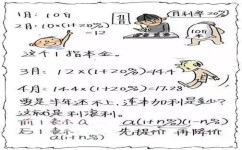 1月：10斤
（月利率20%）
2月：10×(1+20%)
=12
这个1指本金。
3月：12×(1+20%)=14.4
4月：14.4×(1+20%)=17.28
要是半年还不上，连本加利是多少？
这就是利滚利
前1表示a
a(1+n%)(1-n%)
后1表示
a(1+n%)
先提价 再降价